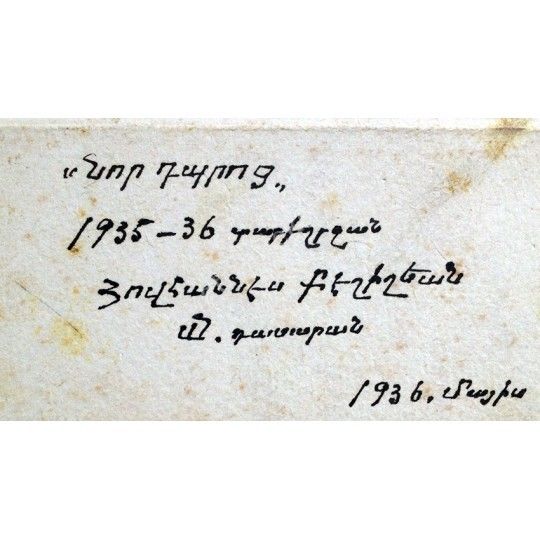 «ՆՈՐ ԴՊՐՈՑ„
1935-36 տարեշրջան
Յովհաննէս
Ա. դասարան
1936. մայիս